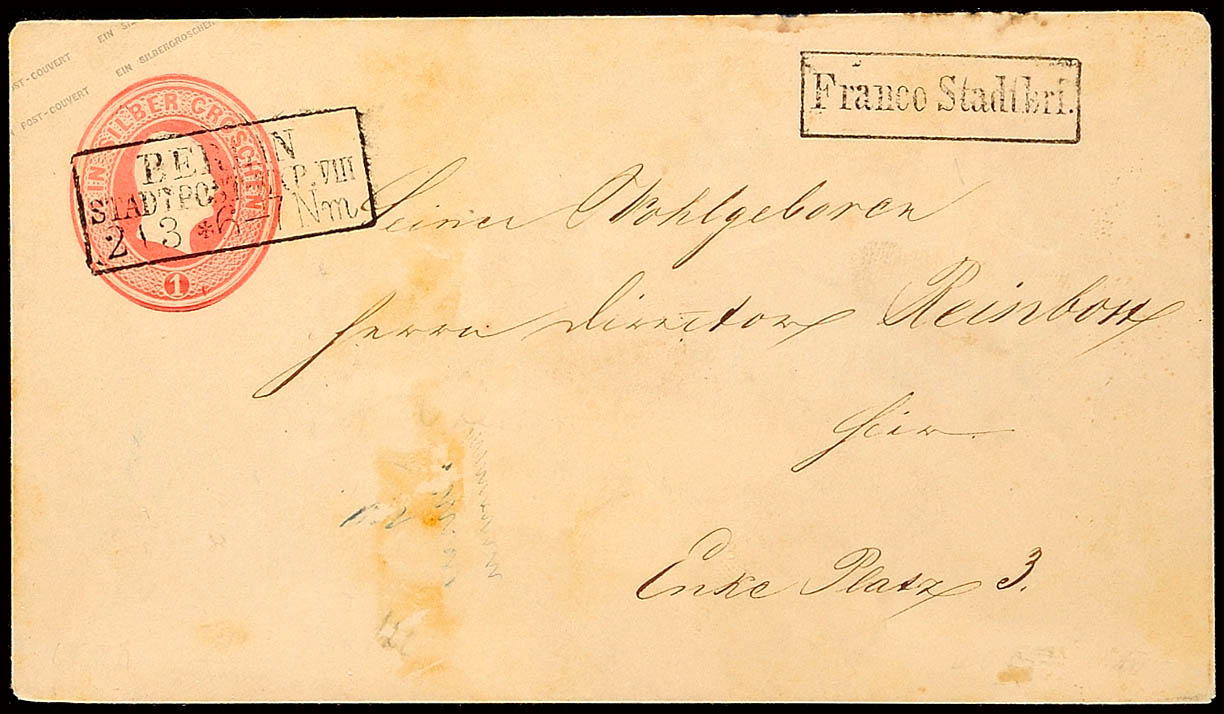 EIN SILBERGROSCHEN
POST-COUVERT EIN SILBERGROSCHEN
POST-COUVERT
EIN SILBER GROSCHEN
1
BERLIN
STADTPOST EXP. VIII
2 3 * 6-7 Nm
Franco Stadtbrf.
Seiner Wohlgeboren
Herrn Director Reinbott
hier
Enke Platz 3.